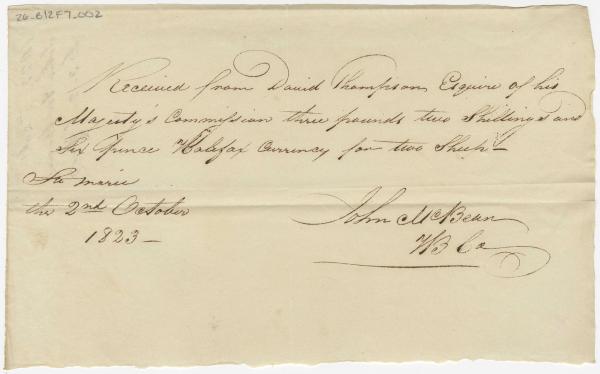 26_B12F7_002
Received from David Thompson Esquire of his
Majesty's Commission three pounds two Shillings and
Six pence Halifax Currency for two Sheep
Ste marie
the 2nd October
1823
John McBean
HB Co